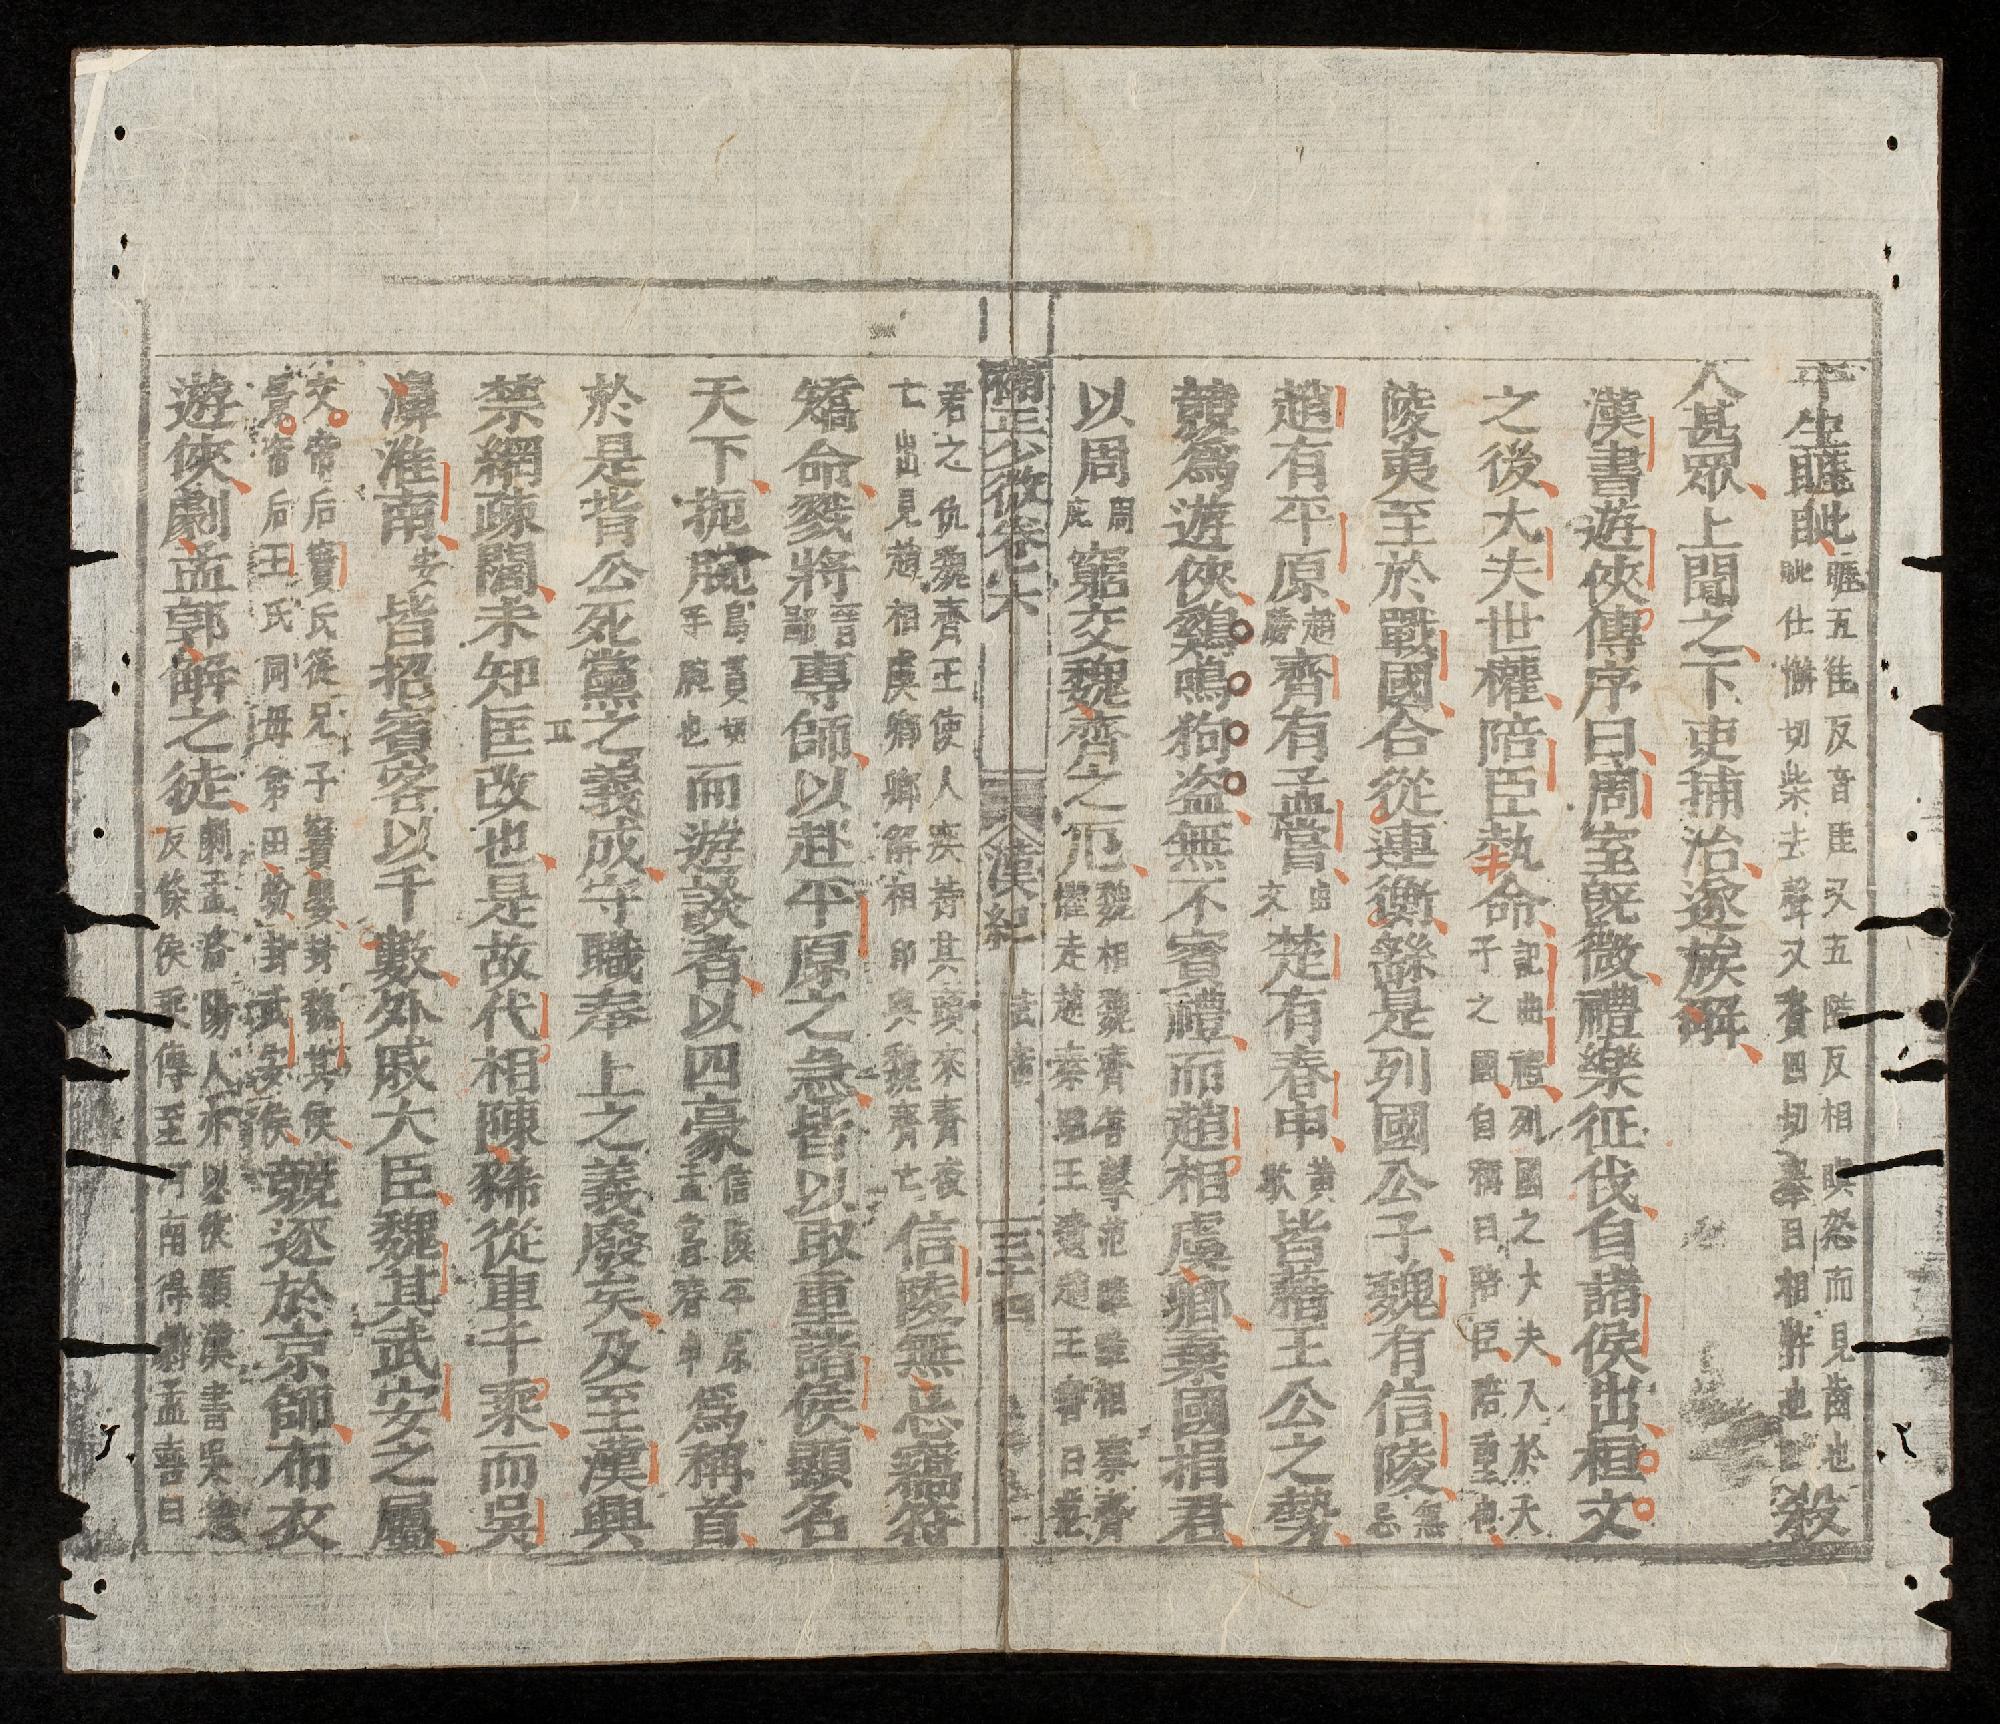 平生睚眦睚五隹反音厓又五懈反相瞋怒而見齒也眦仕懈切柴去聲又賚四切擧目相忤也殺
人甚眾上聞之下吏捕治逐族解
漢書遊俠傳序曰周室旣微禮樂征伐自諸侯出桓文
之後大夫世權陪臣執命記曲禮列國之大夫入於天子之國自稱曰陪臣陪重也
陵夷至於戰國合從連衡繇是列國公子魏有信陵無忌
趙有平原趙勝齊有孟嘗田文楚有春申黃歇皆藉王公之勢
競爲遊俠鷄鳴狗盜無不賓禮而趙相虞卿棄國捐君
以周周庇窮交魏齊之厄魏相魏齊笞擊范睢睢相秦齊懼走趙秦昭王遺趙王書曰范
補正少微卷六 漢紀 三十四
君之仇魏齊王使人疾持其頭來齊夜亡出見趙相虞卿卿解相印與魏齊亡信陵無忌竊符
矯命戮將晉鄙專師以赴平原之急皆以取重諸侯顯名
天下扼腕烏貫切手腕也而遊談者以四豪信陵平原孟嘗春申爲稱首
於是背公死黨之義成守職奉上之義廢矣及至漢興
禁網疎闊未知匡改也是故代相陳豨從車千乘而吳
濞淮南安皆招賓客以千數外戚大臣魏其武安之屬
文帝后竇氏從兄子竇嬰封魏其侯景帝后王氏同母弟田蚡封武安侯競逐於京師布衣
遊俠劇孟郭解之徒劇孟洛陽人亦以俠顯漢書吳楚反條侯乘傳至河南得劇孟喜曰